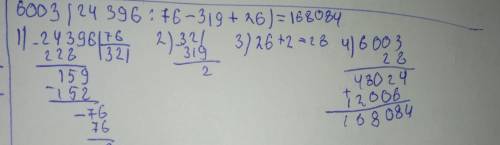 6003(24 396 : 76 - 319 + 26) = 168084
1) 24396 | 76 2) 321 3) 26 + 2 = 28 4) 6003
228 | 321 319 28
159 2 48024
- 152 + 12006
- 76 168084
76